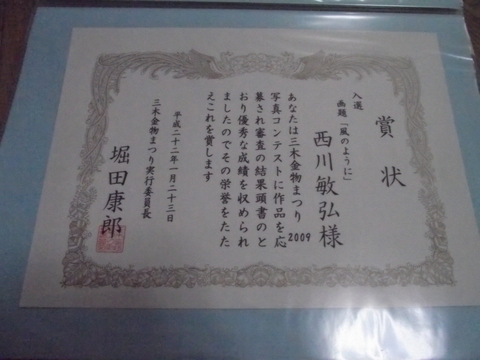 賞状
入選
画題「風のように」
西川敏弘様
あなたは三木金物まつり2009
写真コンテストに作品を応
募され審査の結果頭書のと
おり優秀な成績を収められ
ましたのでその栄誉をたた
えこれを賞します
平成二十二年一月二十三日
三木金物まつり実行委員長
堀田康郎